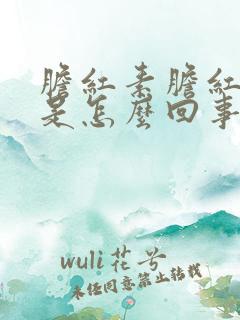 膽紅素膽紅
是怎麼回事
wuli花兮
未经同意禁止转载